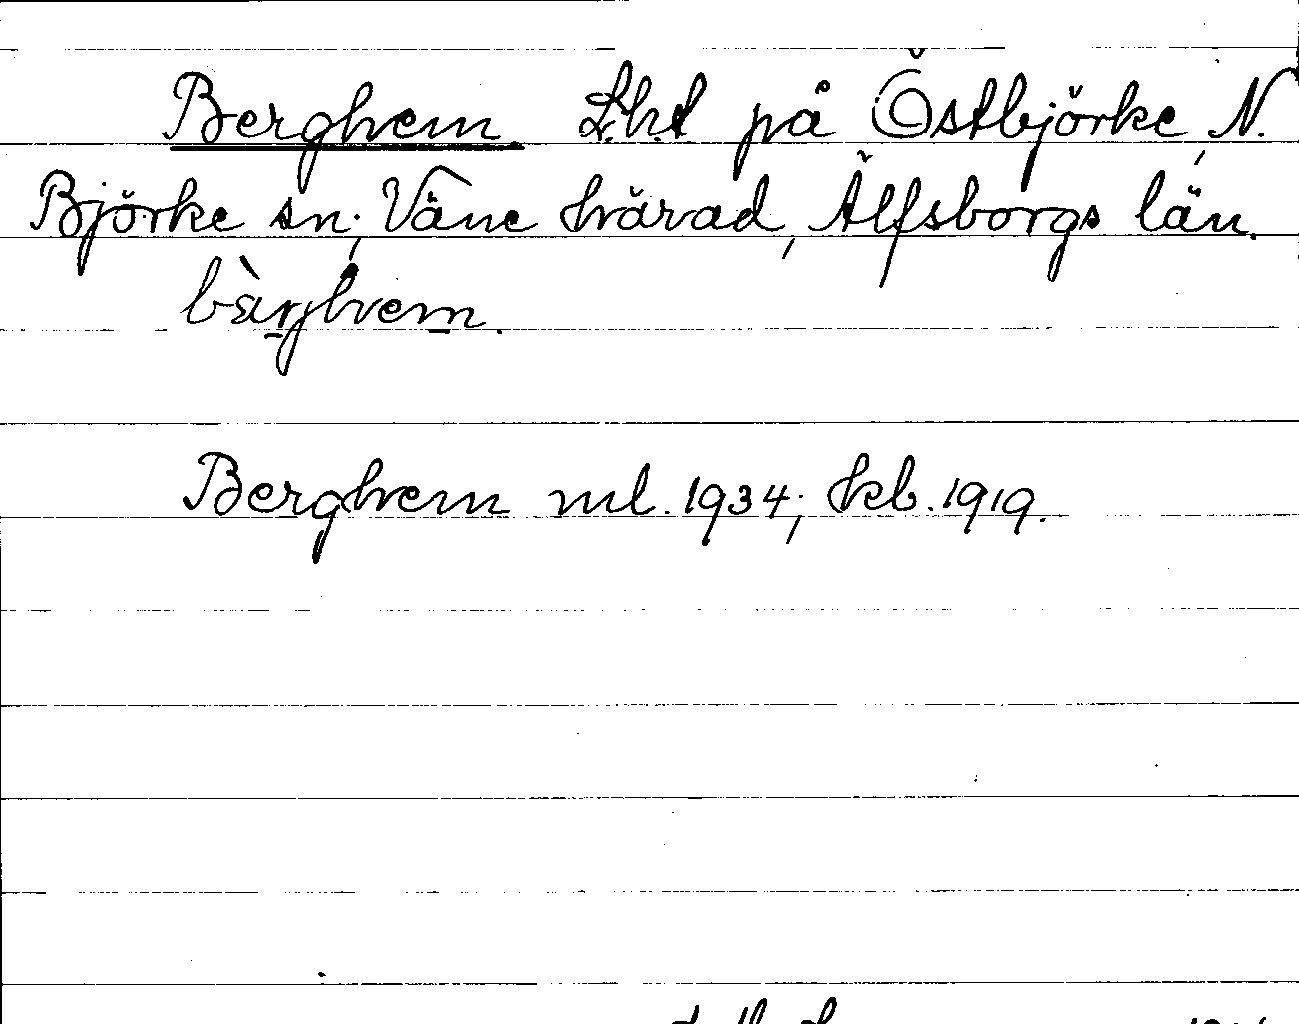 Berghem L.ht på Östbjörke, N.
Björke sn, Väne härad, Älfsborgs län.
bàrjhem.
Berghem ml. 1934; kb. 1919.